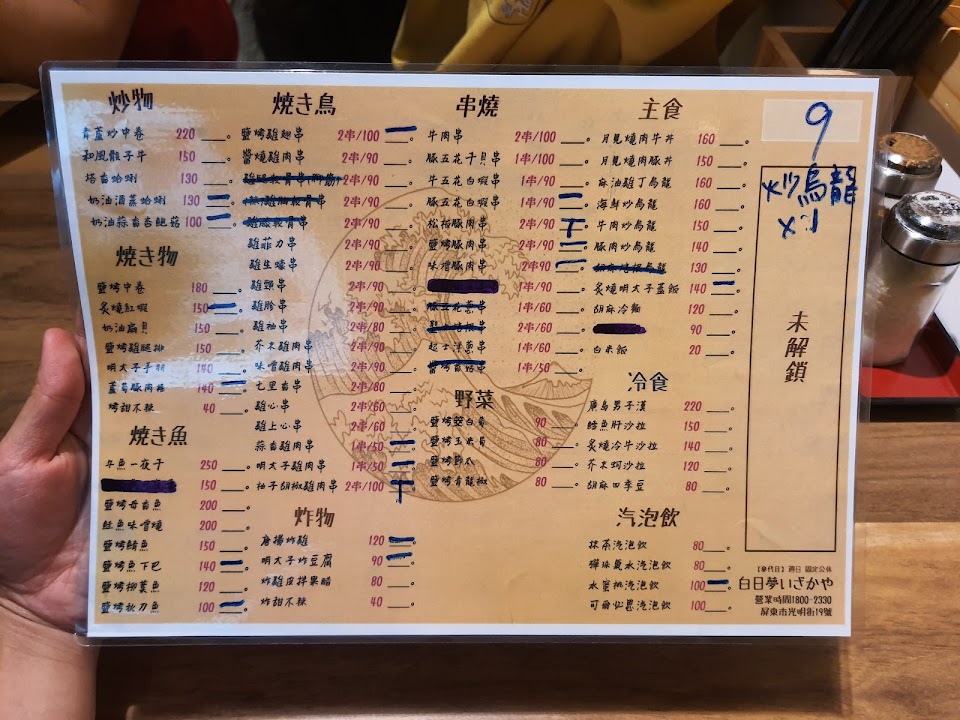 炒物
蘆炒中卷 220
和風骰子牛 150
塔香蛤蜊 130
奶油酒蒸蛤蜊 130
奶油蒜香杏鮑菇 100
焼き物
鹽烤中卷 180
炙燒紅蝦 150
奶油扇貝 150
鹽烤雞腿排 150
明太子手羽 140
蘆筍豚肉捲 140
烤甜不辣 40
焼き魚
午魚一夜干 250
150
鹽烤母香魚 200
鮭魚味噌燒 200
鹽烤鯖魚 150
鹽烤魚下巴 140
鹽烤柳葉魚 120
鹽烤秋刀魚 100
焼き鳥
鹽烤雞翅串 2串/100
醬燒雞肉串 2串/90
2串/90
2串/90
雞腿軟骨串 2串/90
雞菲力串 2串/90
雞生蠔串 2串/90
雞頸串 2串/90
雞胗串 2串/90
雞袖串 2串/80
芥末雞肉串 2串/90
味噌雞肉串 2串/90
七里香串 2串/80
雞心串 2串/60
雞上心串 2串/60
蒜香雞肉串 1串/50
明太子雞肉串 1串/50
柚子胡椒雞肉串 2串/100
炸物
唐揚炸雞 120
明太子炸豆腐 90
炸雞皮拌果醋 80
炸甜不辣 40
串燒
牛肉串 2串/100
豚五花干貝串 1串/100
牛五花白蝦串 1串/90
豚五花白蝦串 1串/90
松阪豚肉串 2串/90
鹽烤豚肉串 2串/90
味噌豚肉串 2串/90
1串/90
豚五花蔥串 1串/90
2串/60
起士洋蔥串 1串/60
1串/50
野菜
鹽烤筊白筍 90
鹽烤玉米筍 80
鹽烤節瓜 80
鹽烤青龍椒 80
主食
月見燒肉牛丼 160
月見燒肉豚丼 150
麻油雞丁烏龍 160
海鮮炒烏龍 160
牛肉炒烏龍 150
豚肉炒烏龍 140
130
炙燒明太子蓋飯 140
胡麻冷麵 120
90
白米飯 20
冷食
廣島男子漢 220
鱈魚肝沙拉 150
炙燒冷牛沙拉 140
芥末蚵沙拉 120
胡麻四季豆 80
汽泡飲
抹茶汽泡飲 80
彈珠夏水汽泡飲 80
水蜜桃汽泡飲 100
可爾必思汽泡飲 100
9
炒烏龍
x1
未解鎖
【摩代日】週日 固定公休
白日夢いざかや
營業時間1800-2330
屏東市光明街19號